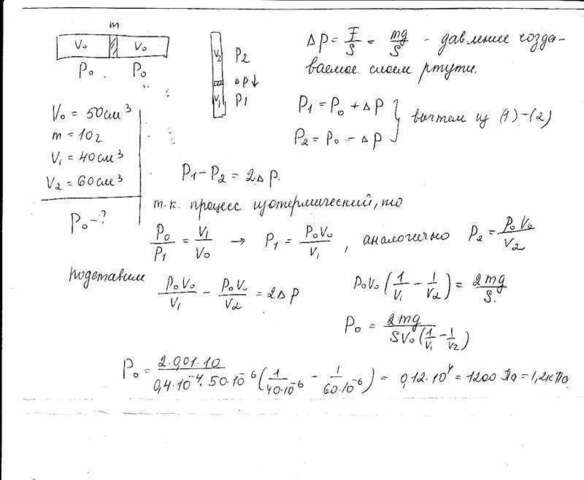 m
V₀ V₀
P₀ P₀
V₂ P₂
ΔP↓
V₁ P₁
ΔP = F/S = mg/S - давление созда-
ваемое слоем ртути.
V₀ = 50см³
m = 10г
V₁ = 40см³
V₂ = 60см³
P₀ - ?
P₁ = P₀ + ΔP
P₂ = P₀ - ΔP
} вычтем из (1)-(2)
P₁ - P₂ = 2ΔP.
т.к. процесс изотермический, то
P₀/P₁ = V₁/V₀ → P₁ = P₀V₀/V₁, аналогично P₂ = P₀V₀/V₂
подставим
P₀V₀/V₁ - P₀V₀/V₂ = 2ΔP P₀V₀(1/V₁ - 1/V₂) = 2mg/S.
P₀ = 2mg/SV₀(1/V₁ - 1/V₂)
P₀ = 2·0,01·10/0,4·10⁻⁴·50·10⁻⁶(1/40·10⁻⁶ - 1/60·10⁻⁶) = 0,12·10⁴ = 1200 Па = 1,2кПа.